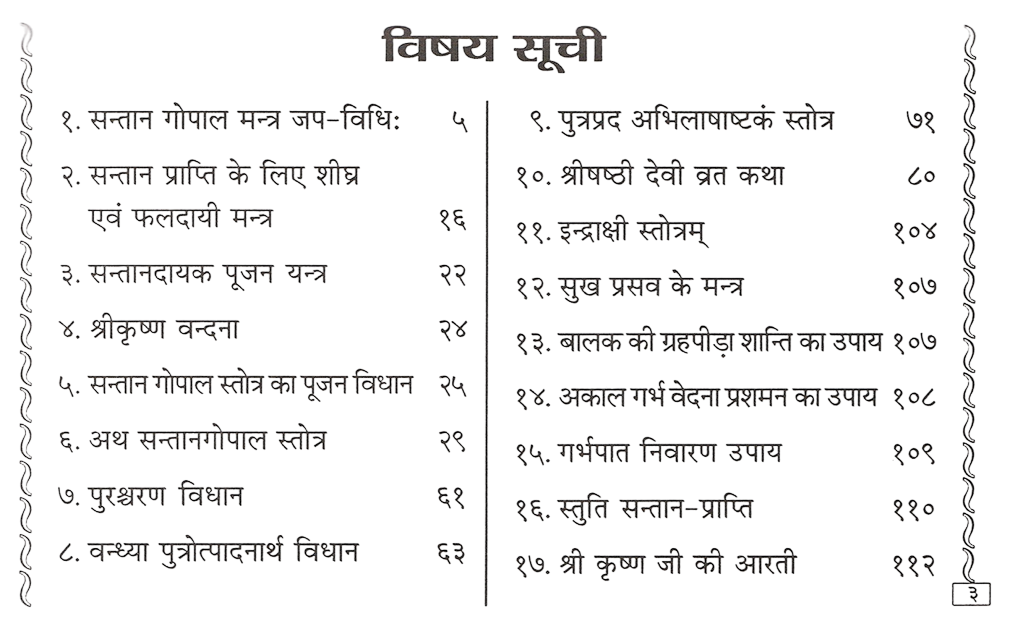 विषय सूची
१. सन्तान गोपाल मन्त्र जप-विधिः ५
२. सन्तान प्राप्ति के लिए शीघ्र
एवं फलदायी मन्त्र १६
३. सन्तानदायक पूजन यन्त्र २२
४. श्रीकृष्ण वन्दना २४
५. सन्तान गोपाल स्तोत्र का पूजन विधान २५
६. अथ सन्तानगोपाल स्तोत्र २९
७. पुरश्चरण विधान ६१
८. वन्ध्या पुत्रोत्पादनार्थ विधान ६३
९. पुत्रप्रद अभिलाषाष्टकं स्तोत्र ७१
१०. श्रीषष्ठी देवी व्रत कथा ८०
११. इन्द्राक्षी स्तोत्रम् १०४
१२. सुख प्रसव के मन्त्र १०७
१३. बालक की ग्रहपीड़ा शान्ति का उपाय १०७
१४. अकाल गर्भ वेदना प्रशमन का उपाय १०८
१५. गर्भपात निवारण उपाय १०९
१६. स्तुति सन्तान-प्राप्ति ११०
१७. श्री कृष्ण जी की आरती ११२
३